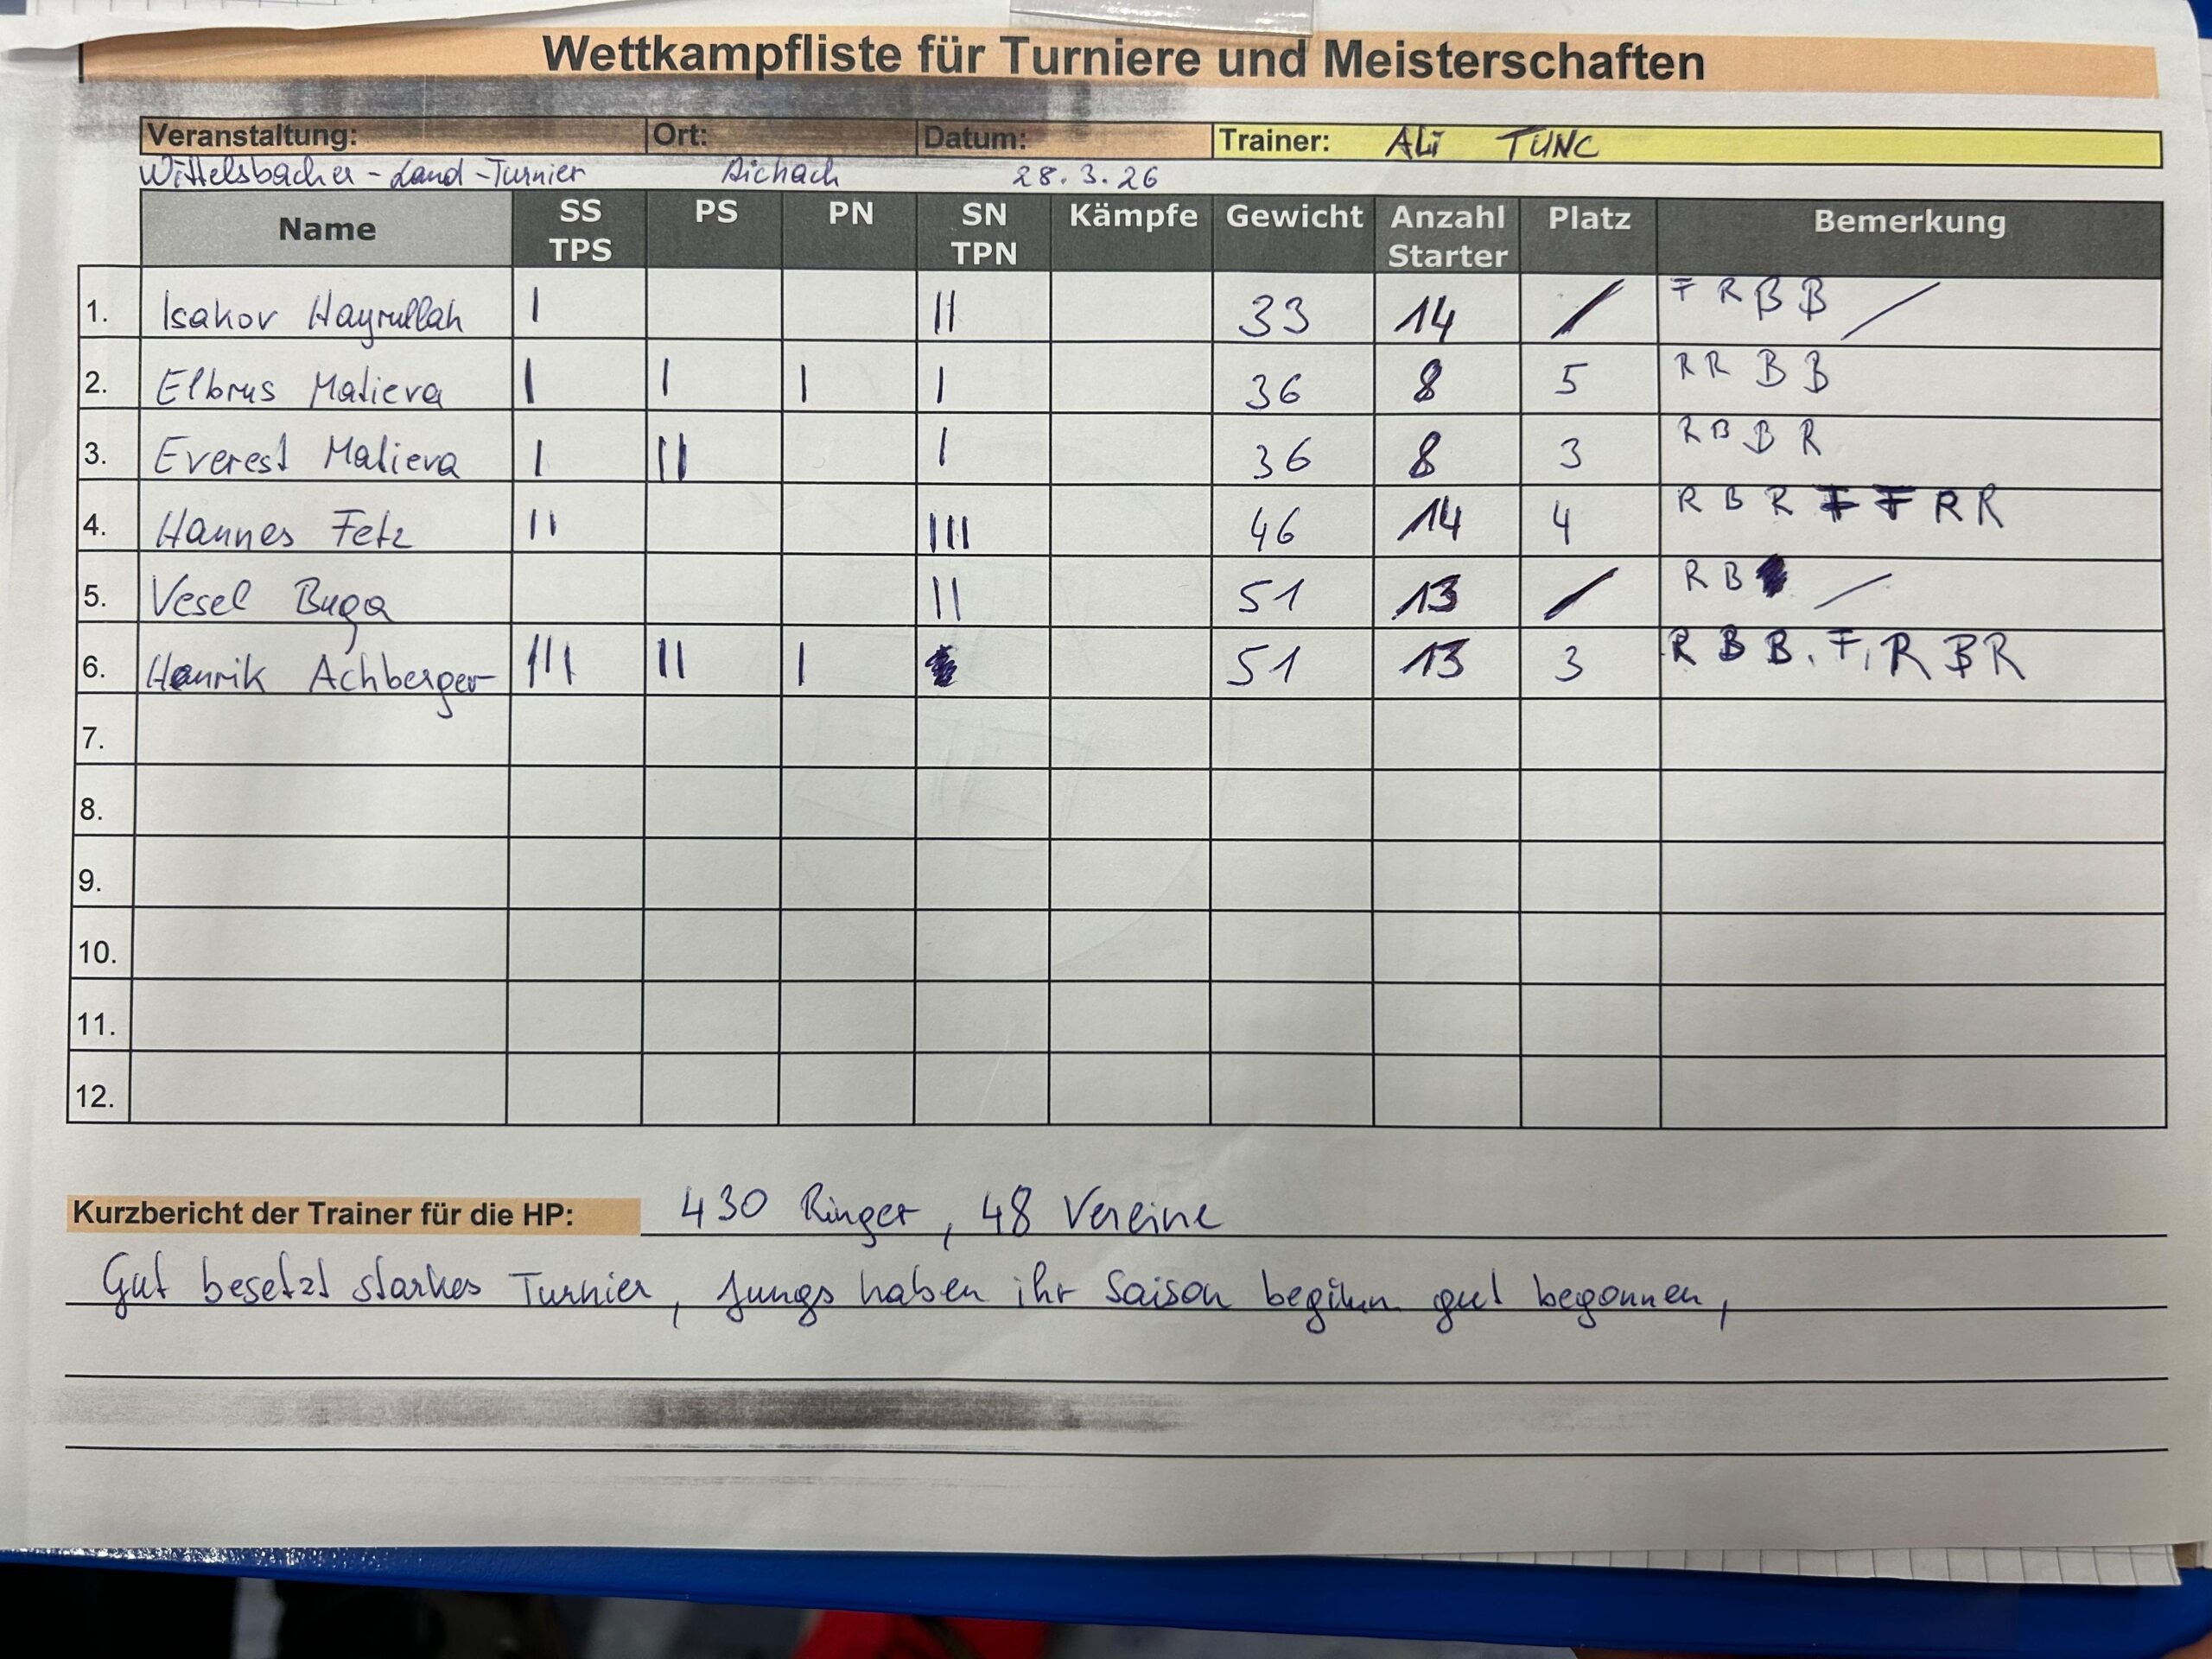 Wettkampfliste für Turniere und Meisterschaften
Veranstaltung: Ort: Datum: Trainer: Ali TUNC
Wittelsbacher-Land-Turnier Aichach 28.3.26
Name SS TPS PS PN SN TPN Kämpfe Gewicht Anzahl Starter Platz Bemerkung
1. Isakov Hayrullah I II 33 14 / F R B B /
2. Elbrus Matieva I I I I 36 8 5 R R B B
3. Everest Matieva I II I 36 8 3 R B B R
4. Hannes Fetz II III 46 14 4 R B R F F R R
5. Vesel Buga II 51 13 / R B /
6. Henrik Achberger III II I 51 13 3 R B B, F, R B R
7.
8.
9.
10.
11.
12.
Kurzbericht der Trainer für die HP: 430 Ringer, 48 Vereine
Gut besetzt starkes Turnier, Jungs haben ihr Saison beginn gut begonnen,